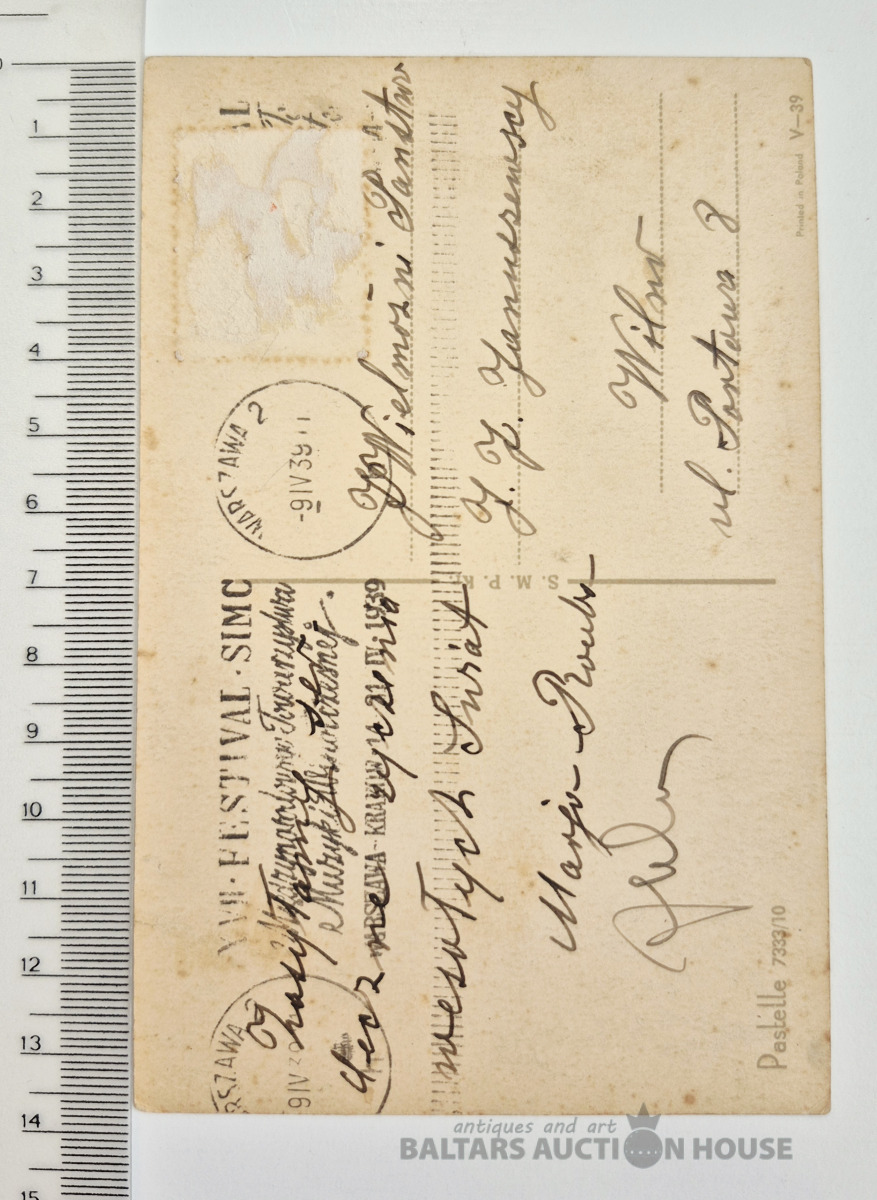 WARSZAWA 2
-9 IV 39 11
XVII · FESTIVAL · SIMC
Międzynarodowego Towarzystwa
Muzyki Współczesnej.
WARSZAWA - KRAKÓW 21 IV. 1939
RSZAWA 2
9 IV 39
Zasyłamy
życzenia
wesołych Świąt
Marja
JWielmożni Państwo
J. Z. Januszewscy
Wilno
ul. Portowa 8
S. M. P. Kr.
Pastelle 7333/10
Printed in Poland V—39
0
1
2
3
4
5
6
7
8
9
10
11
12
13
14
15
antiques and art
BALTARS AUCTION HOUSE